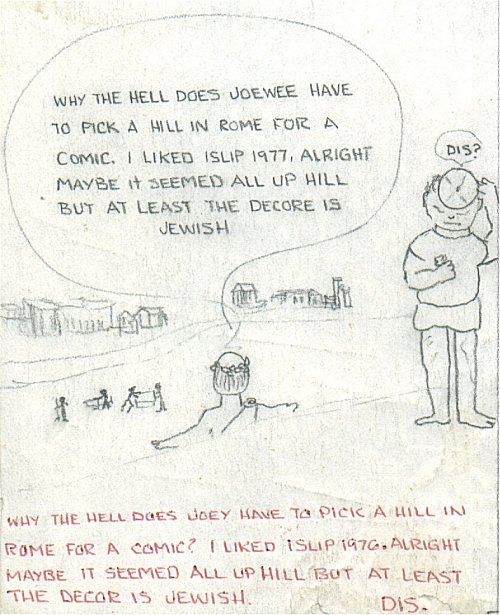 WHY THE HELL DOES JOEWEE HAVE
TO PICK A HILL IN ROME FOR A
COMIC. I LIKED ISLIP 1977, ALRIGHT
MAYBE IT SEEMED ALL UP HILL
BUT AT LEAST THE DECORE IS
JEWISH
DIS?
WHY THE HELL DOES JOEY HAVE TO PICK A HILL IN
ROME FOR A COMIC? I LIKED ISLIP 1976. ALRIGHT
MAYBE IT SEEMED ALL UP HILL BUT AT LEAST
THE DECOR IS JEWISH.
DIS.